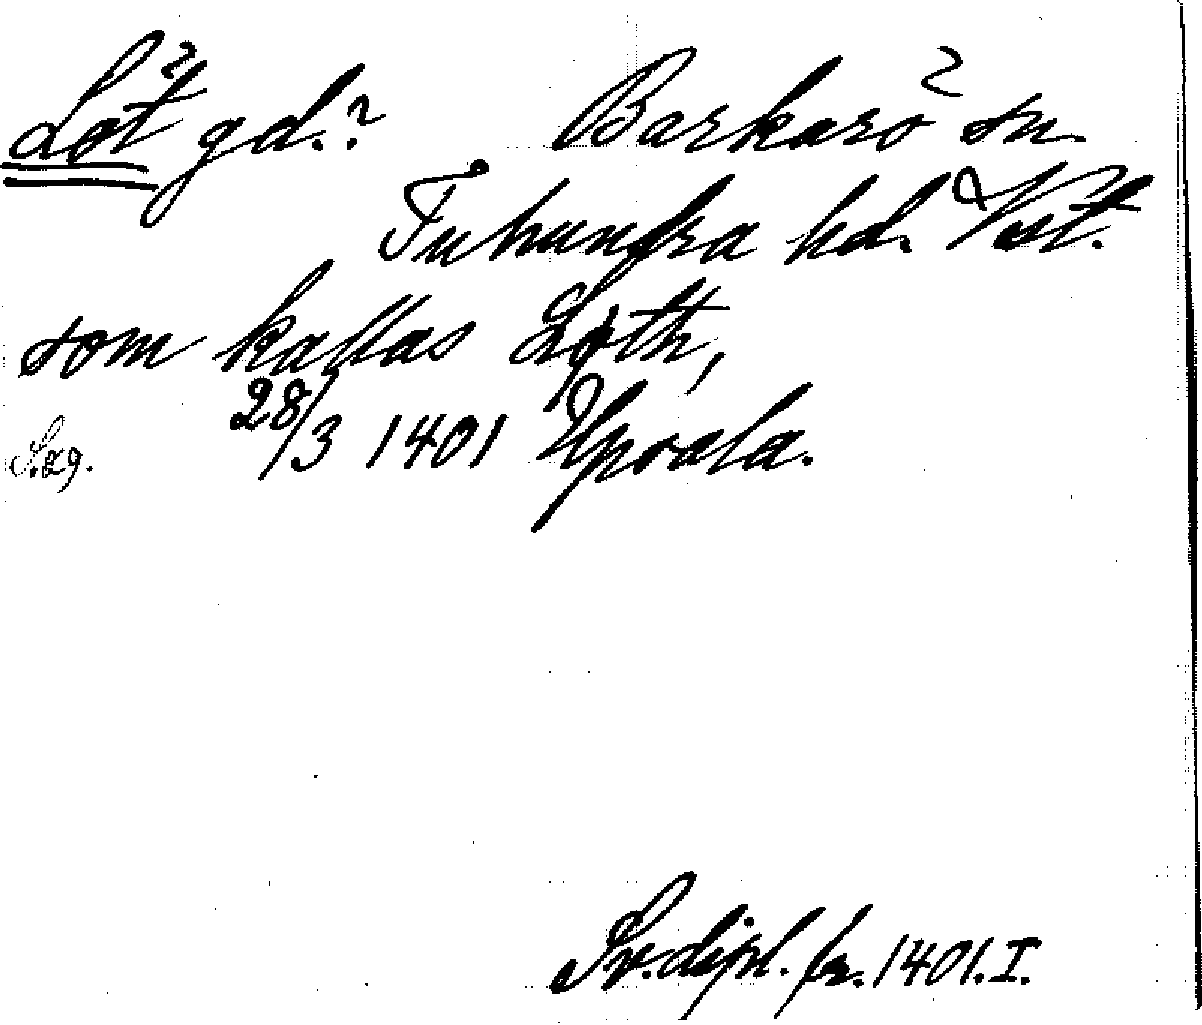 Löt gd.? Barkarö sn
Tuhundra hd. Vstl.
som kallas Løth,
S.29. 28/3 1401 Upsala.
Sv. dipl. fr. 1401. I.